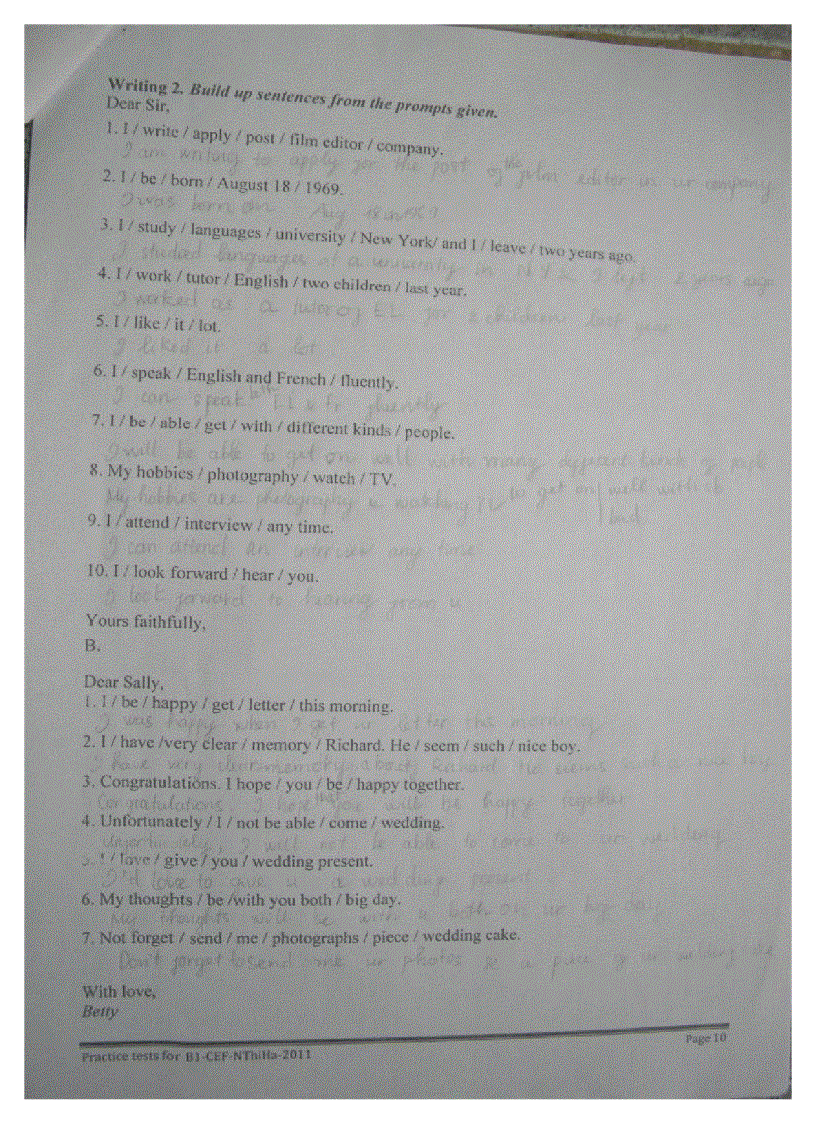 Writing 2. Build up sentences from the prompts given.
Dear Sir,
1. I / write / apply / post / film editor / company.
I am writing to apply for the post of the film editor in ur company
2. I / be / born / August 18 / 1969.
I was born on Aug 18 in 1969
3. I / study / languages / university / New York/ and I / leave / two years ago.
I studied languages at a university in N.Y & I left 2 years ago
4. I / work / tutor / English / two children / last year.
I worked as a tutor of EL for 2 children last year
5. I / like / it / lot.
I liked it a lot
6. I / speak / English and French / fluently.
I can speak both EL & Fr fluently
7. I / be / able / get / with / different kinds / people.
I will be able to get on well with many different kinds of
8. My hobbies / photography / watch / TV.
My hobbies are photography & watching TV to get on well with sb
9. I / attend / interview / any time.
I can attend an interview any time
10. I / look forward / hear / you.
I look forward to hearing from u
Yours faithfully,
B.
Dear Sally,
1. I / be / happy / get / letter / this morning.
I was happy when I get ur letter this morning
2. I / have /very clear / memory / Richard. He / seem / such / nice boy.
I have very clear memory about Richard He seems such a nice boy
3. Congratulations. I hope / you / be / happy together.
Congratulations. I hope that you will be happy together
4. Unfortunately / I / not be able / come / wedding.
Unfortunately, I will not be able to come to ur wedding
5. I / love / give / you / wedding present.
I'd love to give u a wedding present
6. My thoughts / be /with you both / big day.
My thoughts will be with u both on ur big day
7. Not forget / send / me / photographs / piece / wedding cake.
Don't forget to send me ur photos & a piece of ur wedding
With love,
Betty
Practice tests for B1-CEF-NThiHa-2011
Page 10